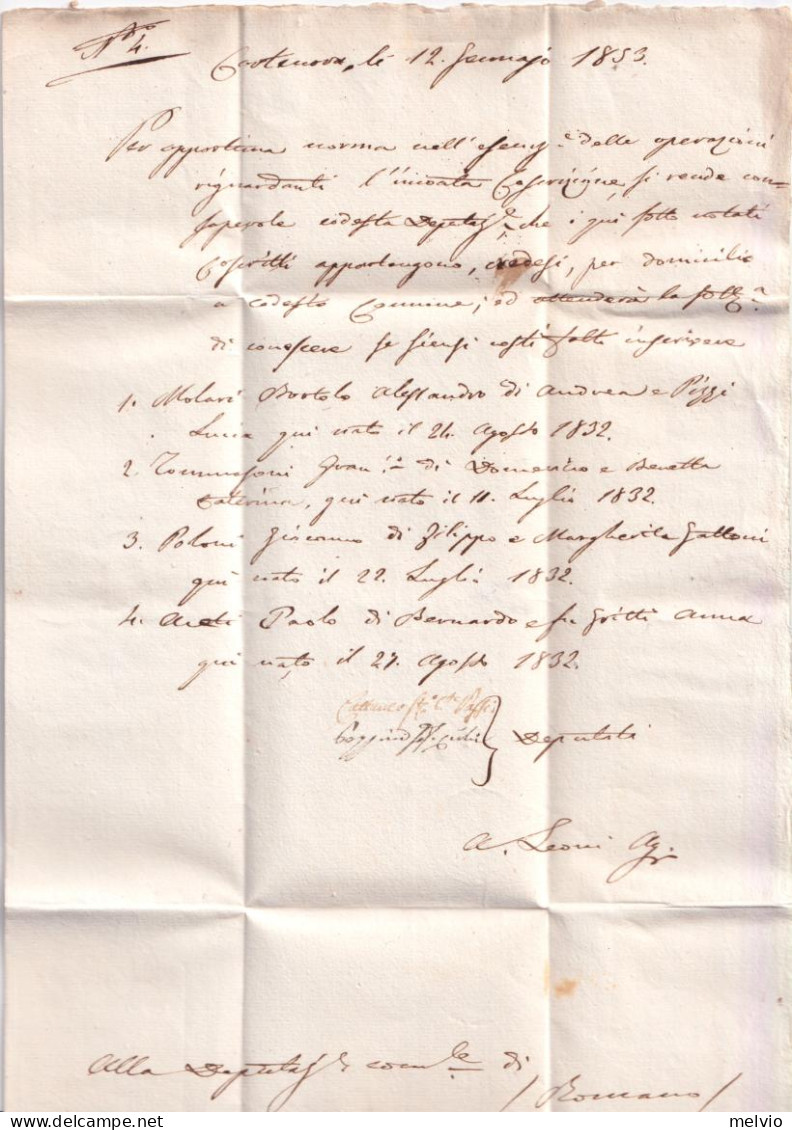 N.ro 4.
Cortenova, li 12. Gennajo 1853.
Per opportuna norma nell'esenz.e delle operazioni
riguardanti l'incoata Coscrizione, si rende con-
sapevole codesta Deputaz.e che i qui sotto notati
Coscritti appartengono, credesi, per domicilio
a codesto Comune; ed attenderà la sott.a
di conoscere se siensi costì fatti inscrivere
1. Molari Bortolo Alessandro di Andrea e Pizzi
Lucia qui nato il 24. Agosto 1832.
2. Tommasoni Fran.co di Domenico e Benetta
Caterina, qui nato il 11. Luglio 1832.
3. Poloni Giacomo di Filippo e Margherita Gattoni
qui nato il 22. Luglio 1832.
4. Paolo di Bernardo e fu Gritti Anna
qui nato il 27. Agosto 1832.
Deputati
A. Leoni Ag.
Alla Deputaz.e com.le di
/Romano/
www.delcampe.net
melvio